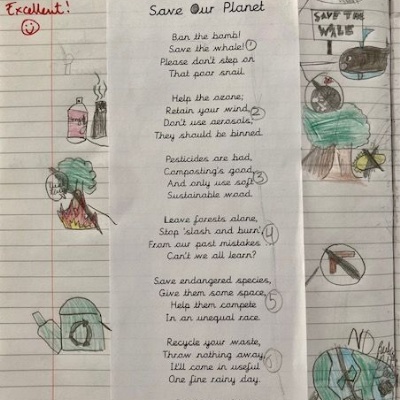 Excellent!
Save Our Planet
SAVE THE
WALE
Ban the bomb!
Save the whale! 1
Please don't step on
That poor snail.
Help the ozone;
Retain your wind, 2
Don't use aerosols,
They should be binned.
Pesticides are bad,
Composting's good,
And only use soft 3
Sustainable wood.
Leave forests alone,
Stop 'slash and burn', 4
From our past mistakes
Can't we all learn?
Save endangered species,
Give them some space, 5
Help them compete
In an unequal race.
Recycle your waste,
Throw nothing away, 6
It'll come in useful
One fine rainy day.
NO